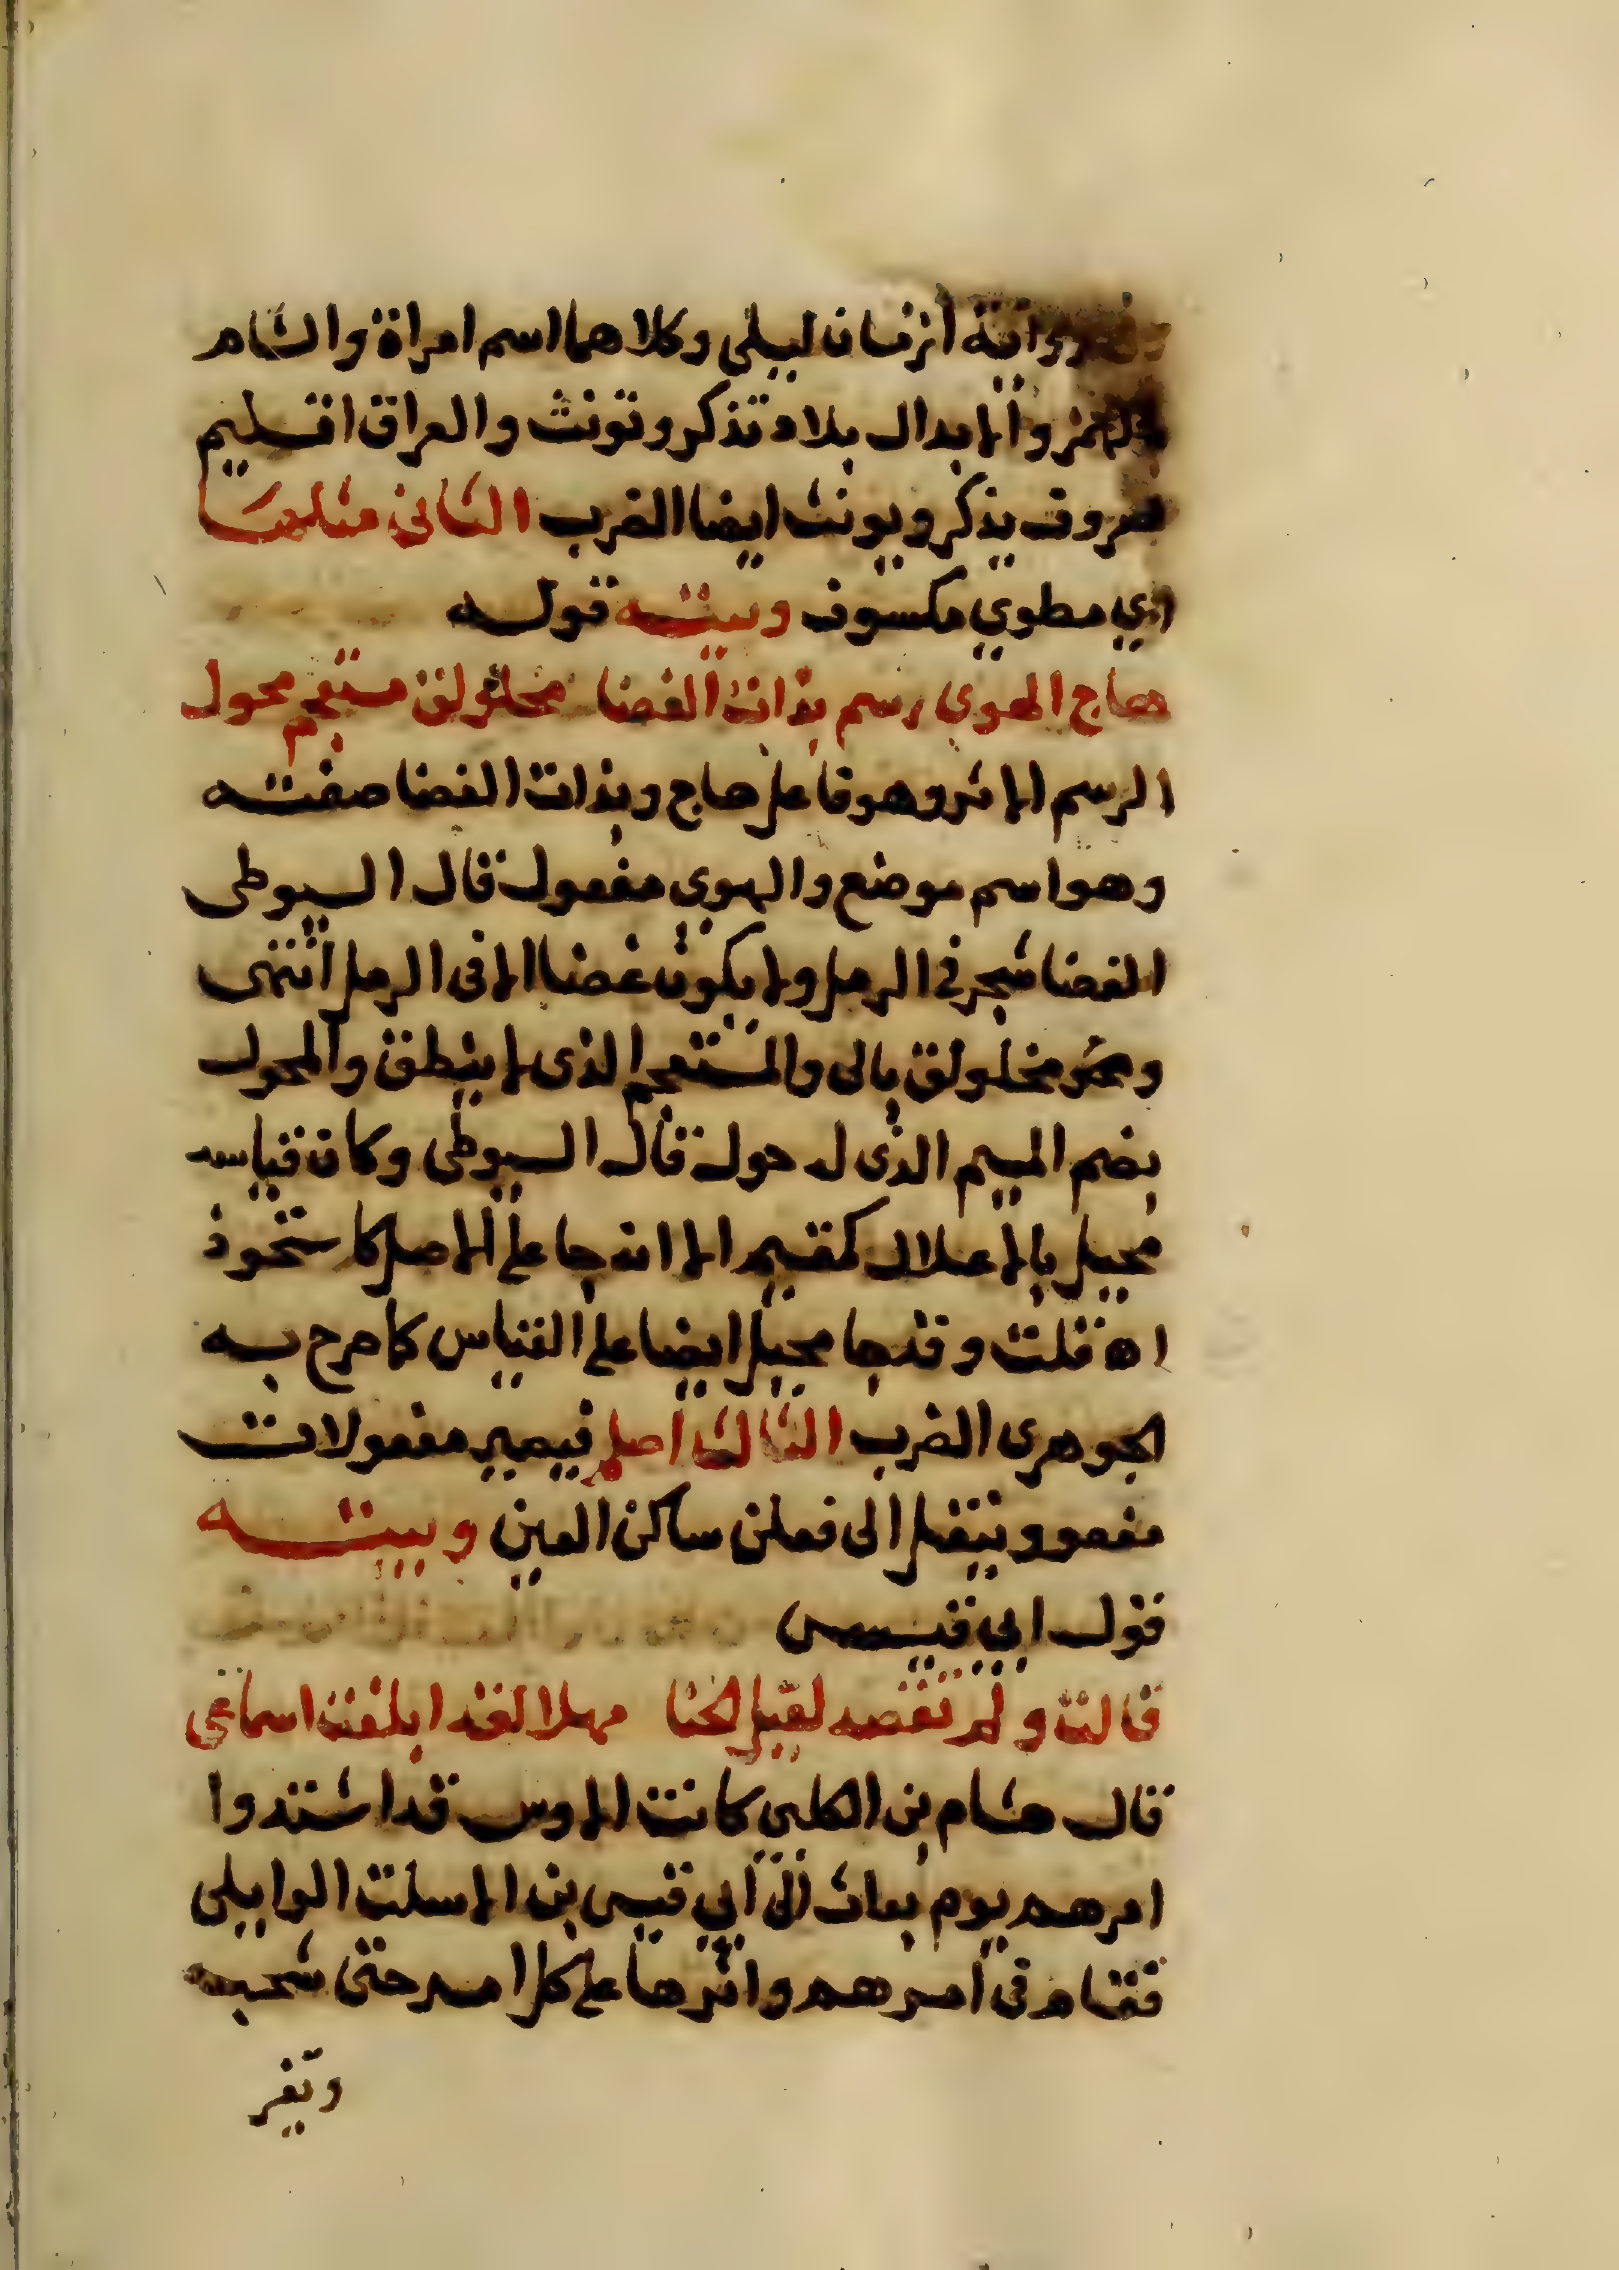 وفي رواية أزمان ليلى وكلاهما اسم امراة والشام
بالهمز والابدال بلاد تذكر وتونث والعراق اقليم
معروف يذكر ويونث ايضا الضرب الثاني مثلها
اي مطوي مكسوف وبيته قوله
هاج الهوى رسم بذات الغضا مخلولق مستعجم محول
الرسم الاثر وهو فاعل هاج وبذات الغضا صفته
وهو اسم موضع والهوي مفعول قال السيوطى
الغضا شجر في الرمل ولا يكون غضا الا فى الرمل انتهى
ومخلولق بالى والمستعجم الذى لا ينطق والمحول
بضم الميم الذى له حول قال السيوطى وكان قياسه
محيل بالاعلال كمقيم الا انه جا على الاصل كاستحوذ
اه قلت وقد جا محيل ايضا على القياس كما صرح به
الجوهرى الضرب الثالث اصلم فيصير مفعولات
مفعو وينقل الى فعلن ساكن العين وبيته
قول ابي قيس
قالت ولم تقصد لقيل الخنا مهلا لقد ابلغت اسماعي
قال هشام بن الكلبي كانت الاوس قد اسندوا
امرهم يوم بعاث الى ابي قيس بن الاسلت الوايلى
فقام فى امرهم واثرها على كل امر حتى شحب
وتغير